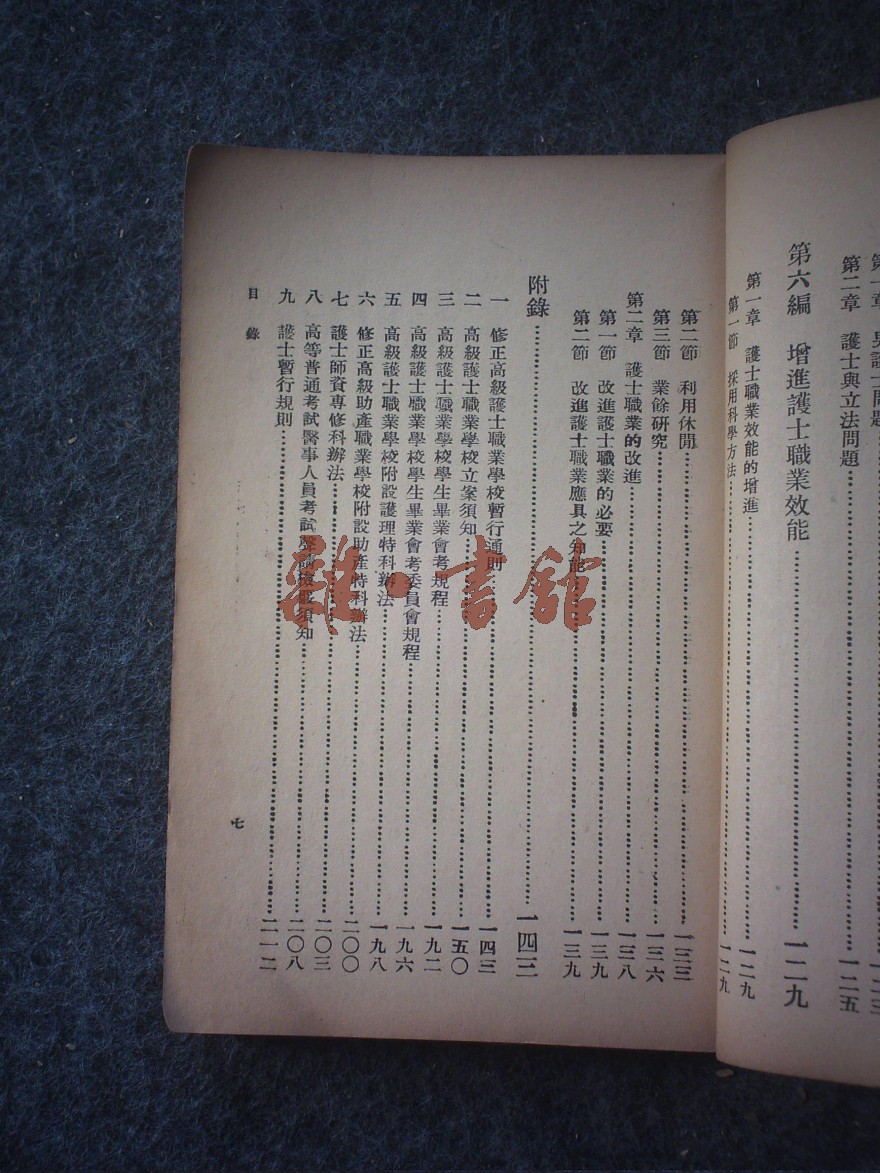 第二章 護士與立法問題……一二五
第六編 增進護士職業效能……一二九
第一章 護士職業效能的增進……一二九
第一節 採用科學方法……一二九
第二節 利用休閒……一三三
第三節 業餘研究……一三六
第二章 護士職業的改進……一三八
第一節 改進護士職業的必要……一三九
第二節 改進護士職業應具之知能……一三九
附錄……一四三
一 修正高級護士職業學校暫行通則……一四三
二 高級護士職業學校立案須知……一五〇
三 高級護士職業學校學生畢業會考規程……一九二
四 高級護士職業學校學生畢業會考委員會規程……一九六
五 高級護士職業學校附設護理特科辦法……一九八
六 修正高級助產職業學校附設助產特科辦法……二〇〇
七 護士師資專修科辦法……二〇三
八 高等普通考試醫事人員考試須知……二〇八
九 護士暫行規則……二一二
目錄
七
雜·書館